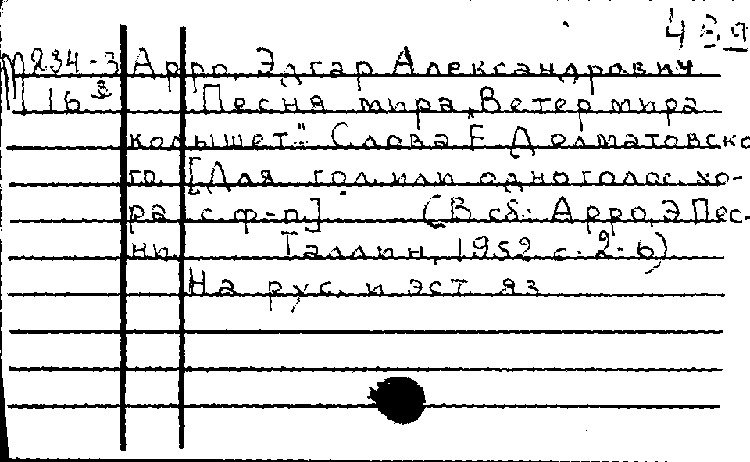 М 234-3 Арро, Эдгар Александрович
16 Песня мира „Ветер мира
колышет". Слова Е. Долматовско-
го. [Для гол. или одноголос. хо-
ра с ф-п.] (В сб.: Арро, Э. Пес-
ни. Таллин, 1952 с. 2-6)
На рус. и эст яз